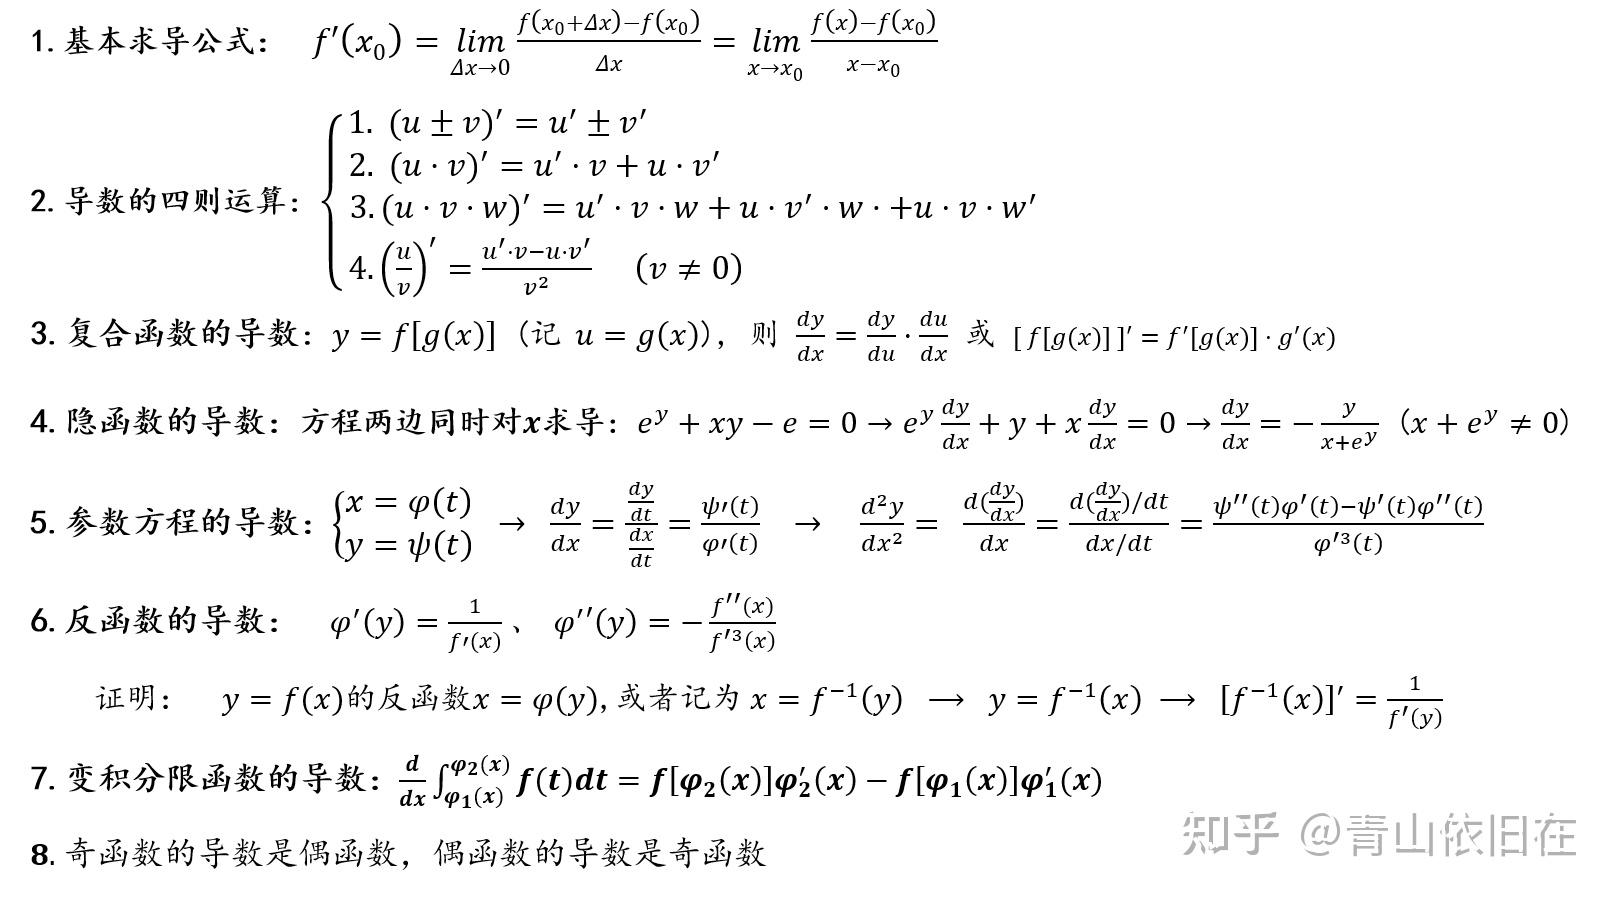 1. 基本求导公式： f′(x₀) = lim_{Δx→0} \frac{f(x₀+Δx)−f(x₀)}{Δx} = lim_{x→x₀} \frac{f(x)−f(x₀)}{x−x₀}
2. 导数的四则运算：
1. (u ± v)′ = u′ ± v′
2. (u · v)′ = u′ · v + u · v′
3. (u · v · w)′ = u′ · v · w + u · v′ · w · +u · v · w′
4. (\frac{u}{v})′ = \frac{u′·v−u·v′}{v²} (v ≠ 0)
3. 复合函数的导数：y = f[g(x)] (记 u = g(x))，则 \frac{dy}{dx} = \frac{dy}{du} · \frac{du}{dx} 或 [ f[g(x)] ]′ = f′[g(x)] · g′(x)
4. 隐函数的导数：方程两边同时对x求导：e^y + xy − e = 0 → e^y \frac{dy}{dx} + y + x \frac{dy}{dx} = 0 → \frac{dy}{dx} = − \frac{y}{x+e^y} (x + e^y ≠ 0)
5. 参数方程的导数：{x = φ(t) y = ψ(t) → \frac{dy}{dx} = \frac{\frac{dy}{dt}}{\frac{dx}{dt}} = \frac{ψ′(t)}{φ′(t)} → \frac{d²y}{dx²} = \frac{d(\frac{dy}{dx})}{dx} = \frac{d(\frac{dy}{dx})/dt}{dx/dt} = \frac{ψ′′(t)φ′(t)−ψ′(t)φ′′(t)}{φ′³(t)}
6. 反函数的导数： φ′(y) = \frac{1}{f′(x)} 、 φ′′(y) = − \frac{f′′(x)}{f′³(x)}
证明： y = f(x)的反函数x = φ(y),或者记为 x = f⁻¹(y) ⟶ y = f⁻¹(x) ⟶ [f⁻¹(x)]′ = \frac{1}{f′(y)}
7. 变积分限函数的导数：\frac{d}{dx} ∫_{φ₁(x)}^{φ₂(x)} f(t)dt = f[φ₂(x)]φ₂′(x) − f[φ₁(x)]φ₁′(x)
8. 奇函数的导数是偶函数，偶函数的导数是奇函数
知乎 @青山依旧在